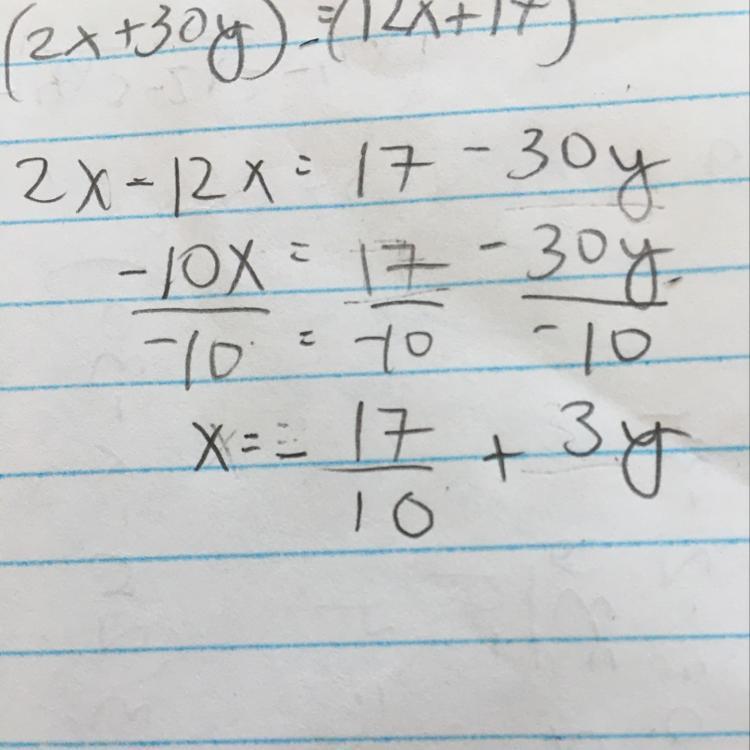 (2x+30y) = (12x+17)
2x - 12x = 17 - 30y
-10x = 17 - 30y
-10 = -10 -10
x = - 17 + 3y
10